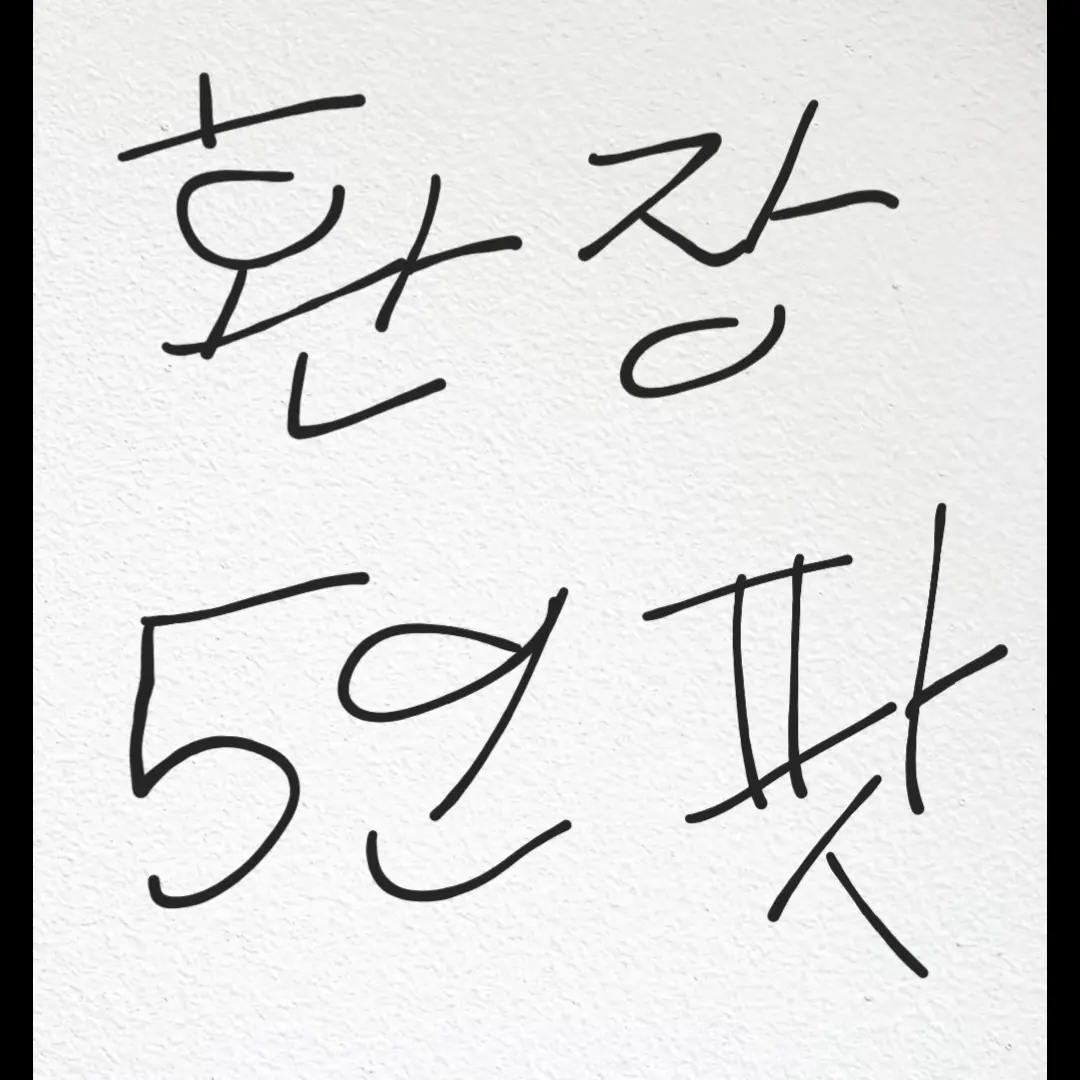 환장
5인팟